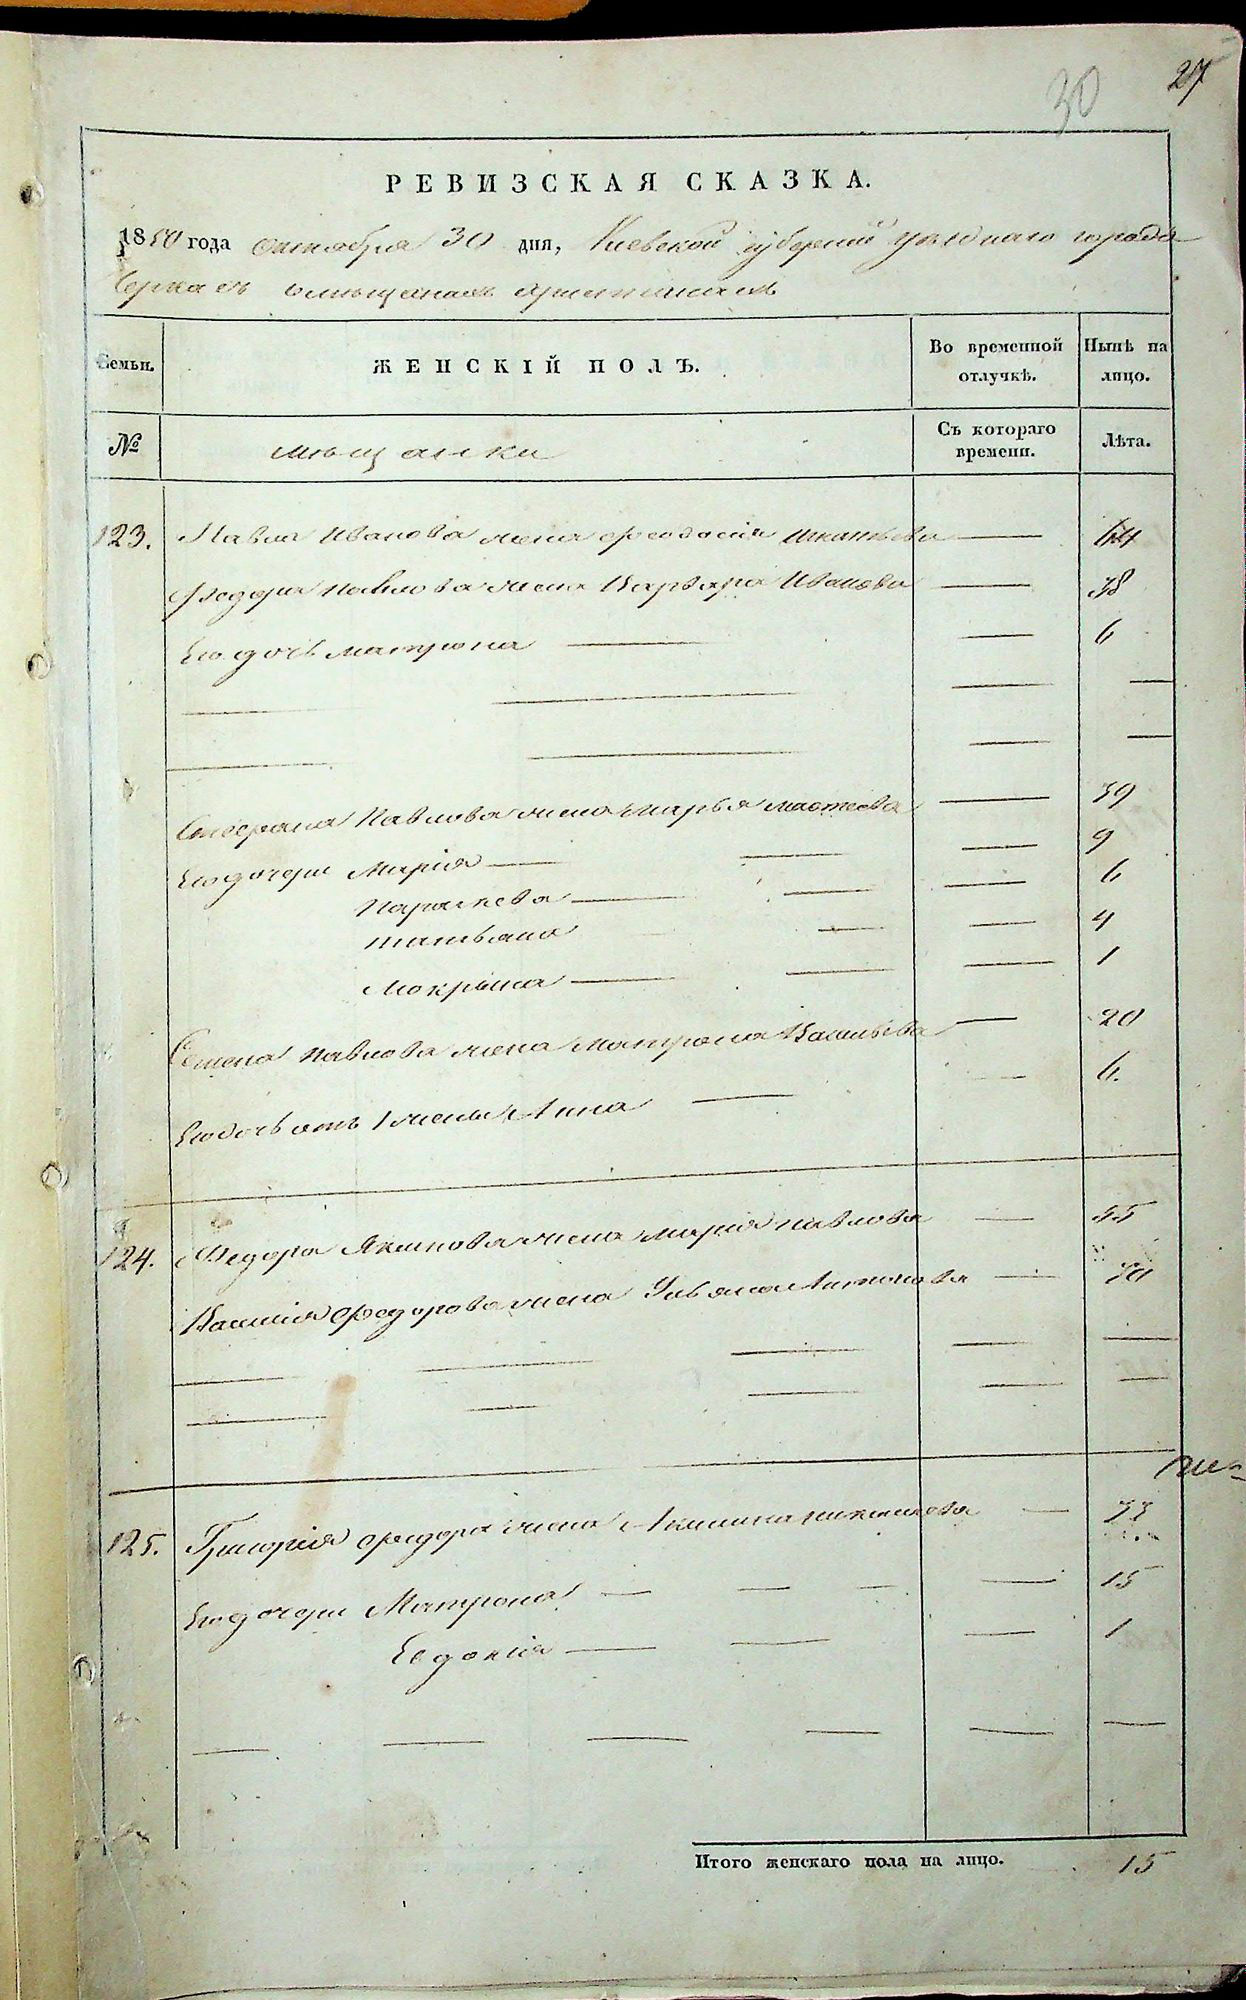 30
27
РЕВИЗСКАЯ СКАЗКА.
1850 года октября 30 дня, Киевской губернии уезднаго города
Черкасъ о мещанахъ христианахъ
Семьи.
ЖЕНСКІЙ ПОЛЪ.
Во временной отлучкѣ.
Нынѣ на лицо.
№
мещанки
Съ котораго времени.
Лѣта.
123. Павла Иванова жена Феодосія Игнатьева — 64
Федора Павлова жена Варвара Иванова — 38
Его дочь Матрона — 6
Стефана Павлова жена Марья Матвеева — 39
Его дочери Марія — 9
Параскева — 6
Татьяна — 4
Мокрына — 1
Семена Павлова жена Матрона Васильева — 20
Его дочь отъ 1 жены Анна — 6.
124. Федора Якимова жена Марія Павлова — 55
Василія Федорова жена Ульяна Антонова — 30
125. Григорія Федора жена Акилина — 33
Его дочери Матрона — 15
Евдокія — 1
Итого женскаго пола на лицо. 15